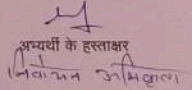 अभ्यर्थी के हस्ताक्षर
निर्वाचन अभिकर्ता